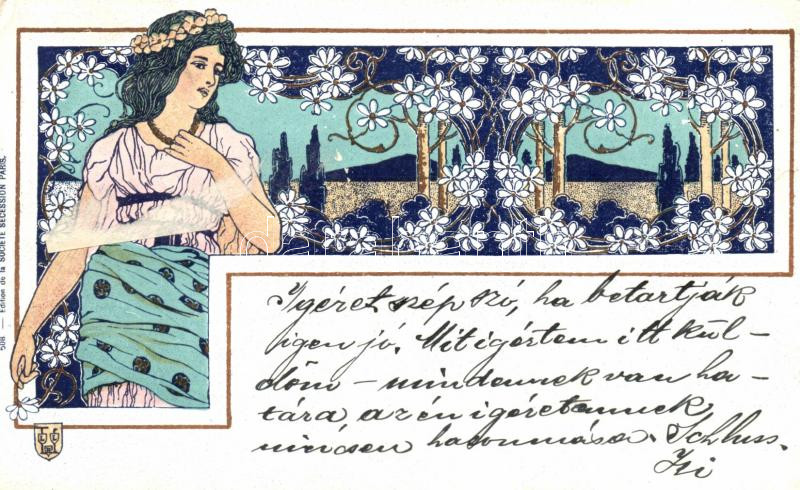 508 — Edition de la SOCIÉTÉ SECESSION PARIS.
Igéret szép szó, ha betartják
igen jó. Mit igértem itt kül-
döm – mindennek van ha-
tára az én igéretemnek
nincsen hasonmása. Schluss.